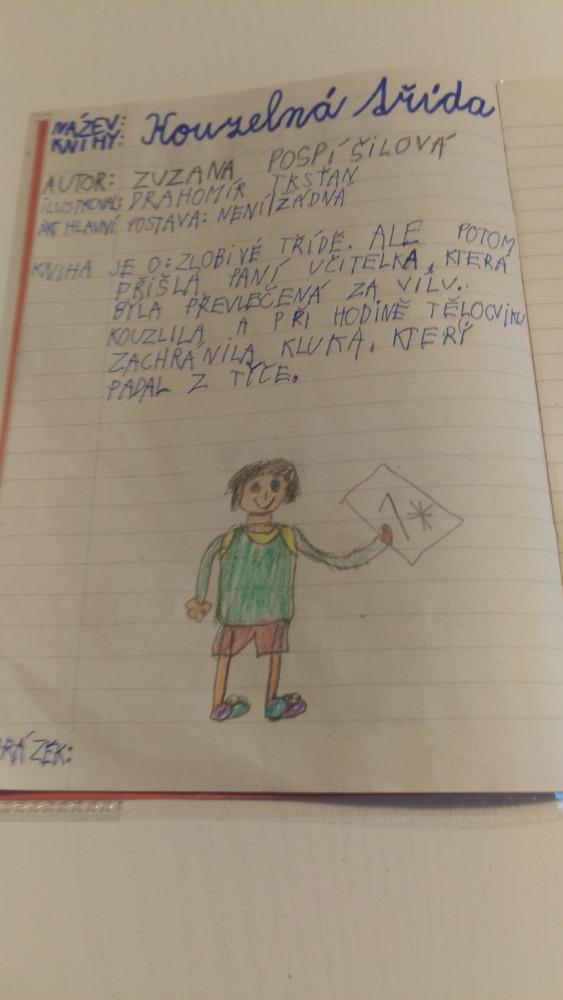 NÁZEV: KNIHY: Kouzelná třída
AUTOR: ZUZANA POSPÍŠILOVÁ
ILUSTROVAL: DRAHOMÍR TRSŤAN
HLAVNÍ POSTAVA: NENÍ ŽÁDNÁ
KNIHA JE O: ZLOBIVÉ TŘÍDĚ. ALE POTOM
PŘIŠLA PANÍ UČITELKA, KTERÁ
BYLA PŘEVLEČENÁ ZA VÍLU.
KOUZLILA A PŘI HODINĚ TĚLOCVIKU
ZACHRÁNILA KLUKA, KTERÝ
PADAL Z TYČE.
1*
RÁZEK: